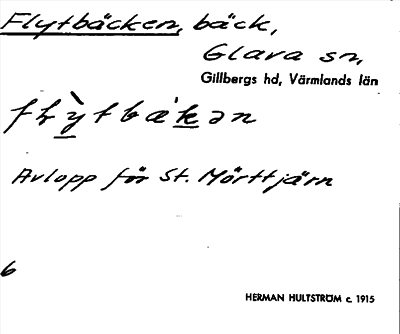 Flytbäcken, bäck,
Glava sn,
Gillbergs hd, Värmlands län
Avlopp för St. Mörttjärn
6
HERMAN HULTSTRÖM c. 1915